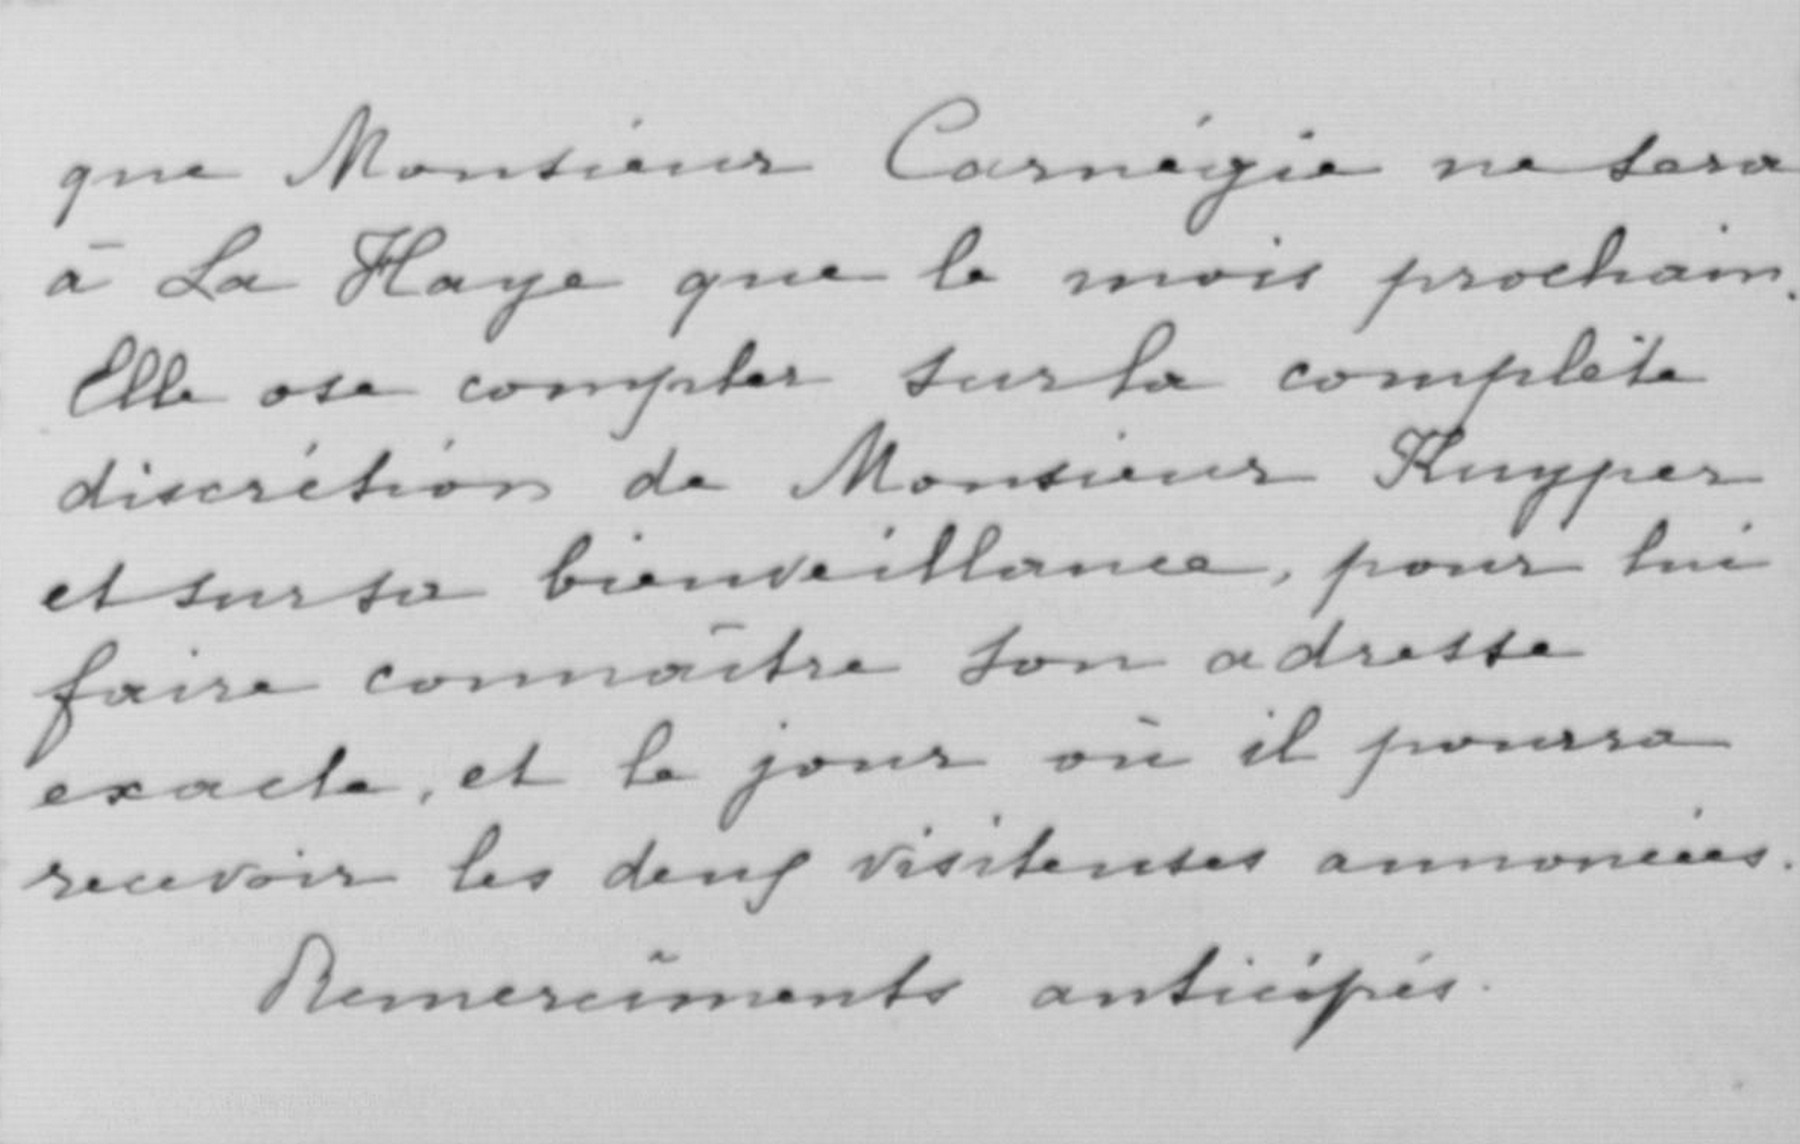 que Monsieur Carnégie ne sera
à La Haye que le mois prochain.
Elle ose compter sur la complète
discrétion de Monsieur Kuyper
et sur sa bienveillance, pour lui
faire connaître son adresse
exacte, et le jour où il pourra
recevoir les deux visiteuses annoncées.
Remercîments anticipés.